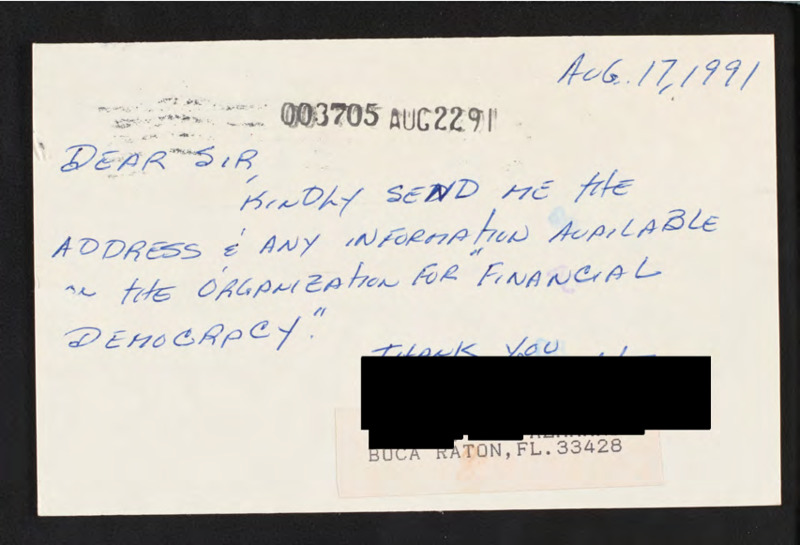 AUG. 17, 1991
003705 AUG2291
DEAR SIR,
KINDLY SEND ME THE
ADDRESS & ANY INFORMATION AVAILABLE
on THE ORGANIZATION FOR "FINANCIAL
DEMOCRACY."
THANK YOU
BUCA RATON, FL. 33428